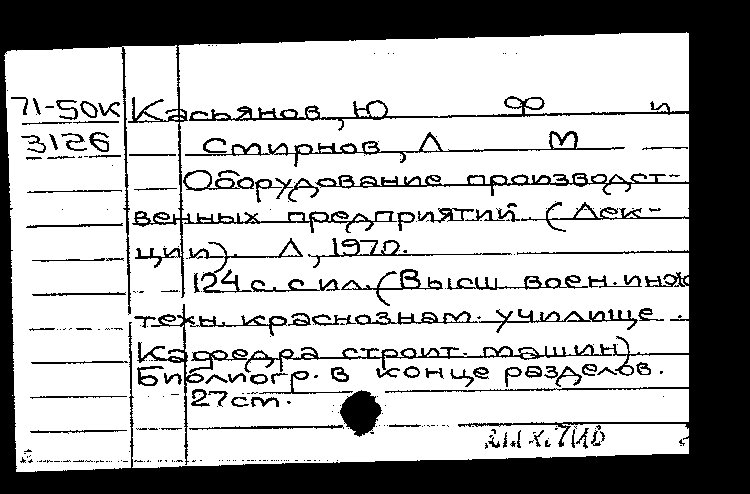 71-50К Касьянов, Ю Ф и
3126 Смирнов, Л М
Оборудование производст-
венных предприятий (Лек-
ции). Л, 1970.
124 с. с ил. (Высш воен. инж
техн. краснознам. училище.
Кафедра строит. машин).
Библиогр. в конце разделов.
27 cm.